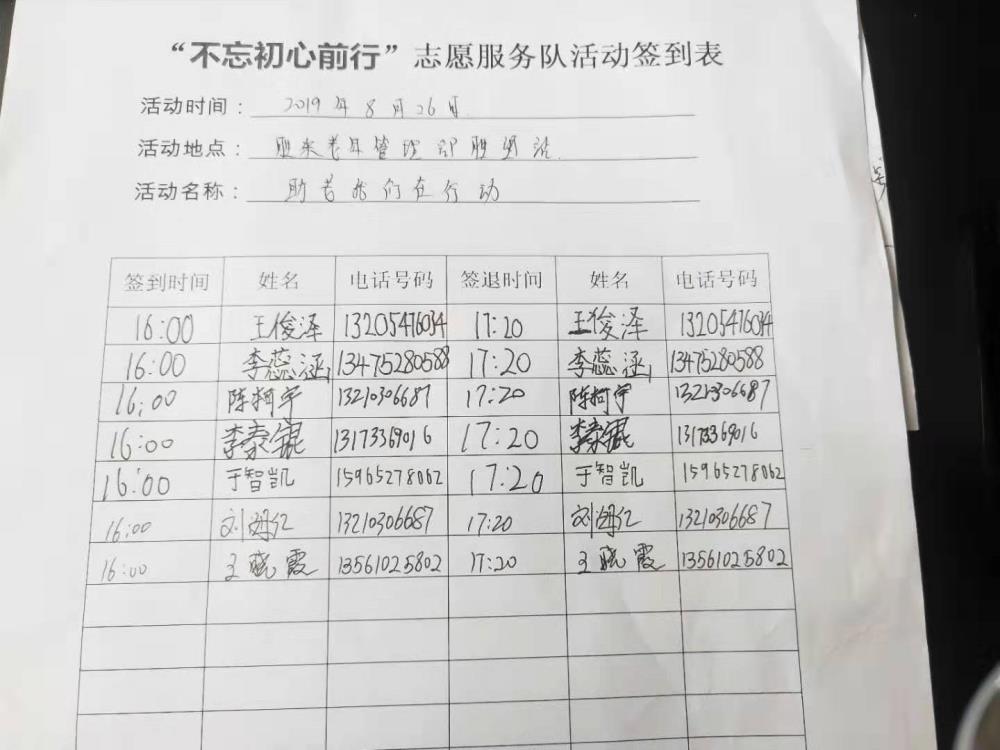 “不忘初心前行”志愿服务队活动签到表
活动时间： 2019年8月26日
活动地点： 胜采老年管理部胜
活动名称： 助老我们在行动
签到时间 姓名 电话号码 签退时间 姓名 电话号码
16:00 王俊泽 13205476034 17:20 王俊泽 13205476034
16:00 李蕊涵 13475280588 17:20 李蕊涵 13475280588
16:00 陈柯宇 13210306687 17:20 陈柯宇 13210306687
16:00 李泰锟 13173369016 17:20 李泰锟 13173369016
16:00 于智凯 15965278062 17:20 于智凯 15965278062
16:00 刘 13210306687 17:20 刘 13210306687
16:00 王晓霞 13561025802 17:20 王晓霞 13561025802